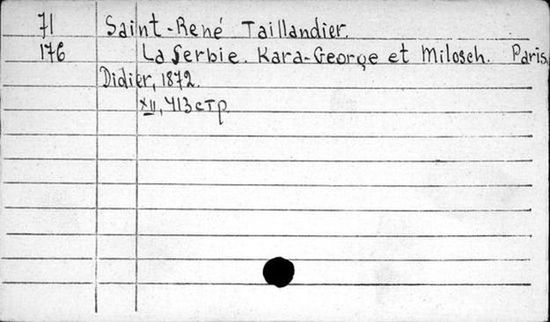 71 Saint-René Taillandier.
176 La Serbie. Kara-George et Milosch. Paris,
Didier, 1872.
XII, 413 стр.